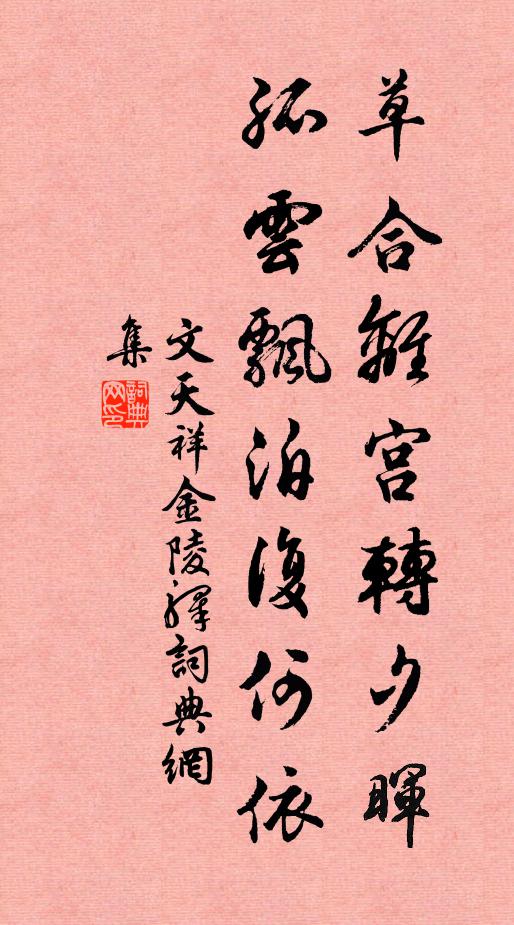 草合離宮轉夕暉
孤雲飄泊復何依
文天祥金陵驛詞典網
集
詞典网印